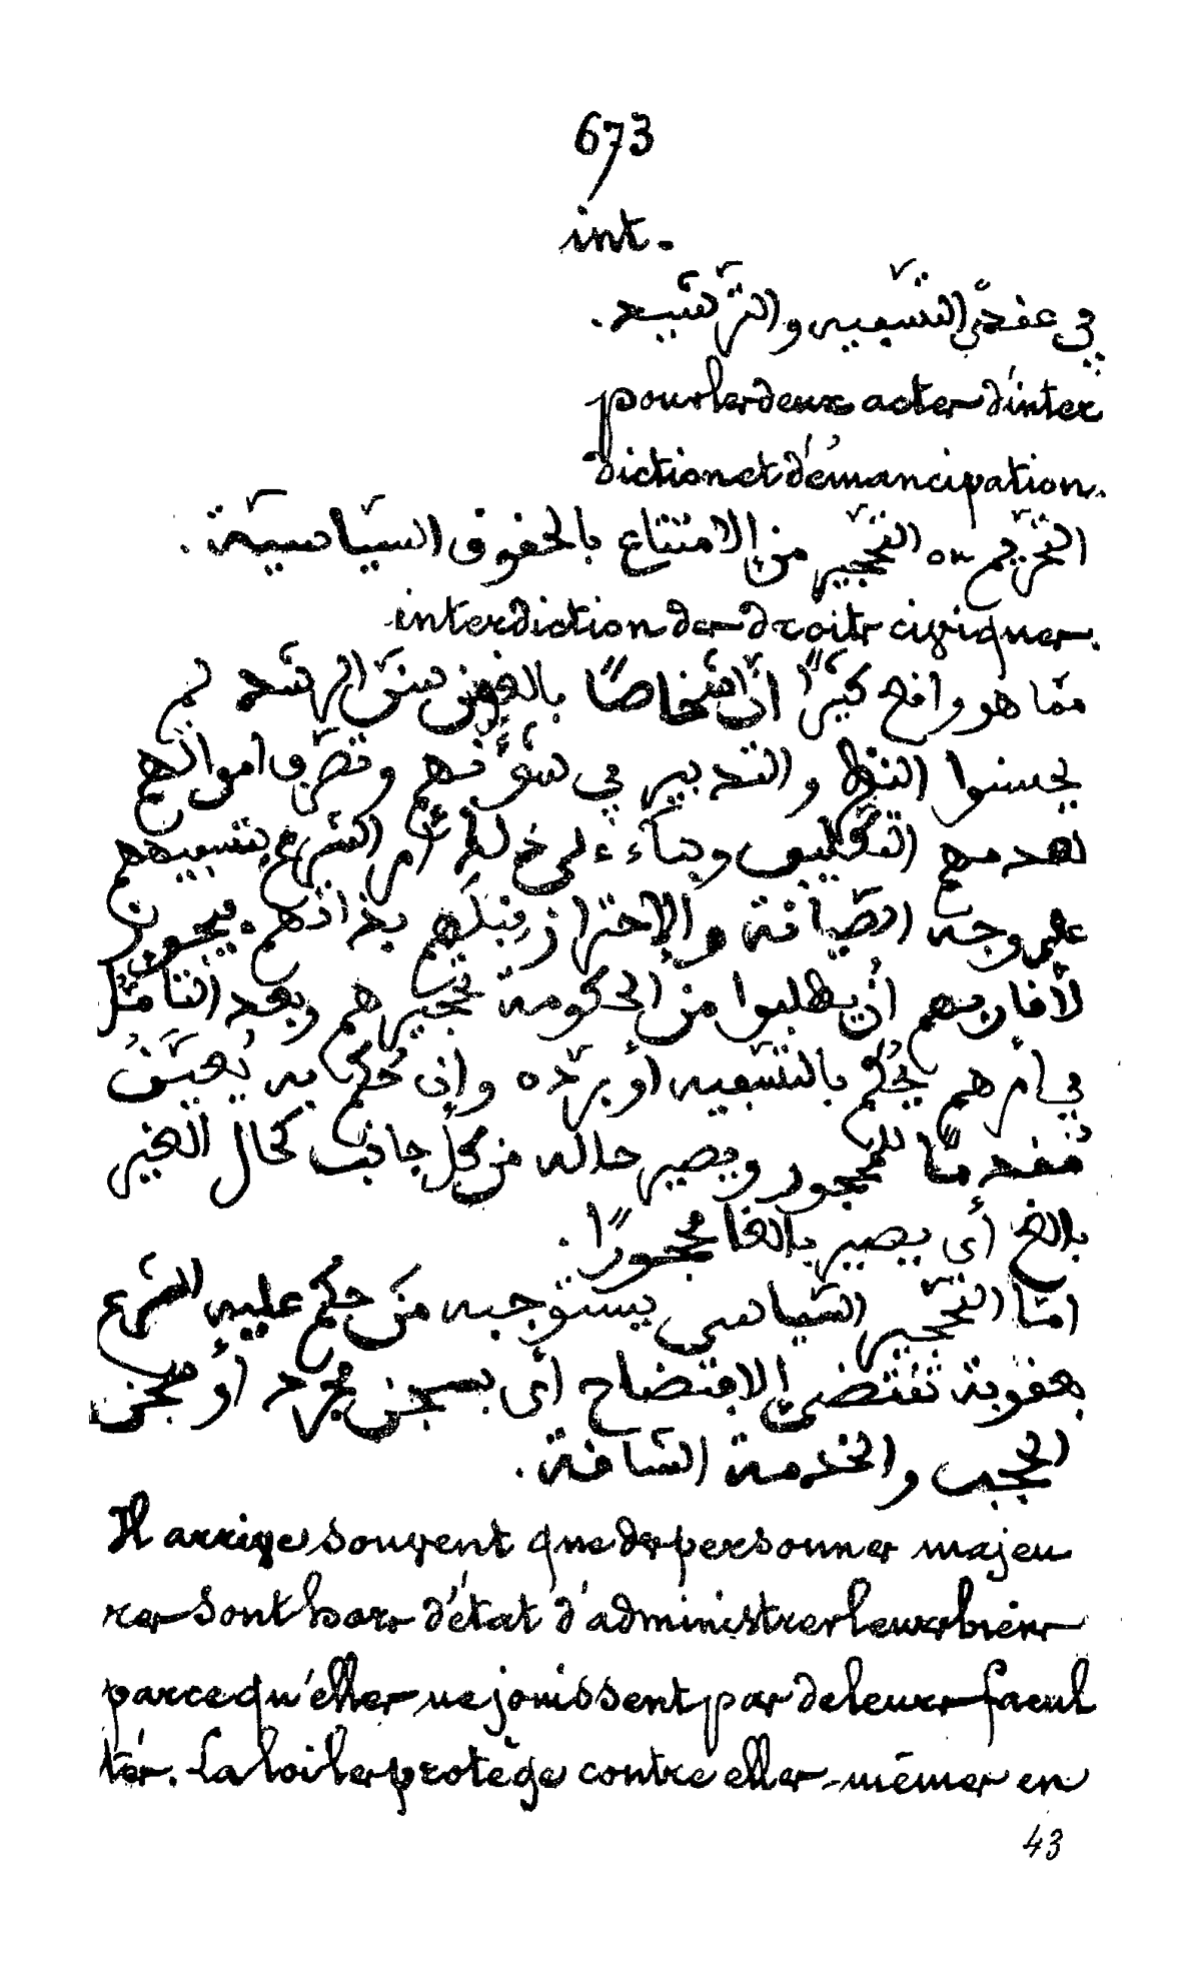 673
int.
في عقدَيْ التّسفيه والتّرشيد.
pour les deux actes d'inter
diction et d'émancipation.
التّحريم ou التّحجير من الامتناع بالحقوق السّياسيّة.
interdiction des droits civiques.
ممّا هو واقع كثيرًا أنّ أشخاصًا بالغين سنّ الرشد لم
يحسنوا النظر والتدبير في شؤُنهم وتصرّف اموالهم
لعدمهم التكليف وبناء على ذلك أمر الشرع بتسفيههم
على وجه الصّيانة والاحتراز مِن قبلهم بذاتهم. فيجوز
لأقاربهم أن يطلبوا من الحكومة تحجيرهم وبعد التأمّل
في أمرهم يُحكم بالتسّفيه أو بردّه وإن حُكم به يُعيَّنُ
مُقدمًا للمحجور ويصير حاله من كلّ جانب كحال الغير
بالغ أي يصير بالغا محجورًا.
امّا التحّجير السّياسي يستوجبه مَن حكم عليه الشرع
بعقوبة تقتضي الافتضاح أي بسجن مجرد أو سجن
الحجب والخدمة الشاقة.
Il arrive souvent que des personnes majeu
res sont hors d'état d'administrer leurs biens
parce qu'elles ne jouissent pas de leurs facul
tés. La loi les protège contre elles-mêmes en
43